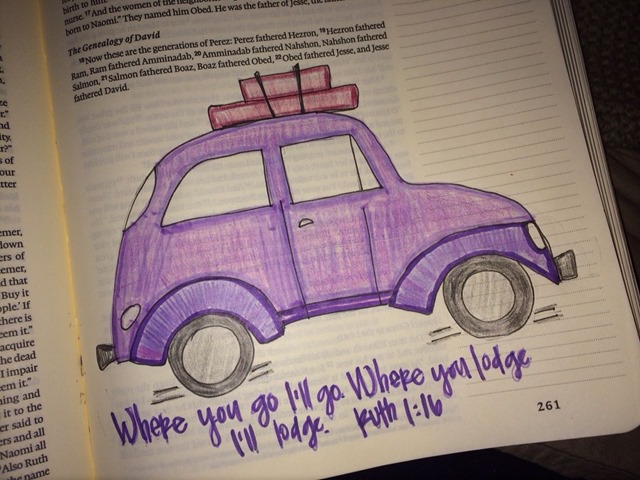 birth to him
nurse. 17 And the women of the neighbor
born to Naomi." They named him Obed. He was the father of Jesse, the
The Genealogy of David
18 Now these are the generations of Perez: Perez fathered Hezron, 19 Hezron fathered
Ram, Ram fathered Amminadab, 20 Amminadab fathered Nahshon, Nahshon fathered
Salmon, 21 Salmon fathered Boaz, Boaz fathered Obed, 22 Obed fathered Jesse, and Jesse
fathered David.
emer,
down
ers of
emer,
d that
Buy it
ople.' If
there is
eem it."
acquire
he dead
I impair
eem it."
ning and
it to the
er said to
ers and all
Naomi all
Also Ruth
he name
Where you go I'll go. Where you lodge
I'll lodge. Ruth 1:16
261